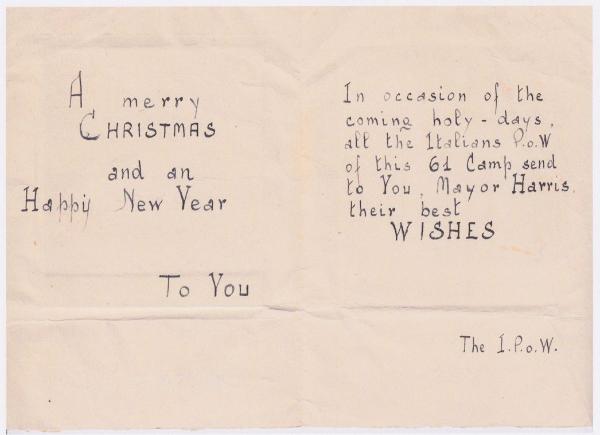 A merry
CHRISTMAS
and an
Happy New Year
To You
In occasion of the
coming holy-days,
all the Italians P.o.W
of this 61 Camp send
to You, Mayor Harris,
their best
WISHES
The I.P.o.W.